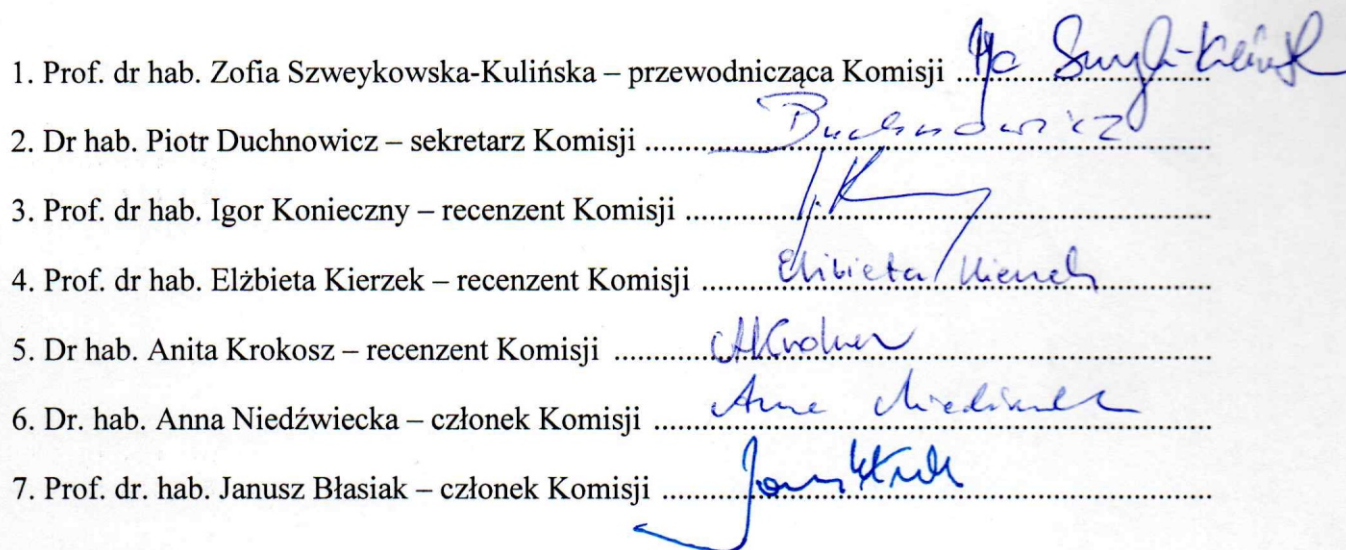 1. Prof. dr hab. Zofia Szweykowska-Kulińska – przewodnicząca Komisji ........................
2. Dr hab. Piotr Duchnowicz – sekretarz Komisji ........................ Duchnowicz
3. Prof. dr hab. Igor Konieczny – recenzent Komisji ........................ I. K
4. Prof. dr hab. Elżbieta Kierzek – recenzent Komisji ........................ Elżbieta Kierzek
5. Dr hab. Anita Krokosz – recenzent Komisji ........................ AKrokosz
6. Dr. hab. Anna Niedźwiecka – członek Komisji ........................ Anna Niedźwiecka
7. Prof. dr. hab. Janusz Błasiak – członek Komisji ........................